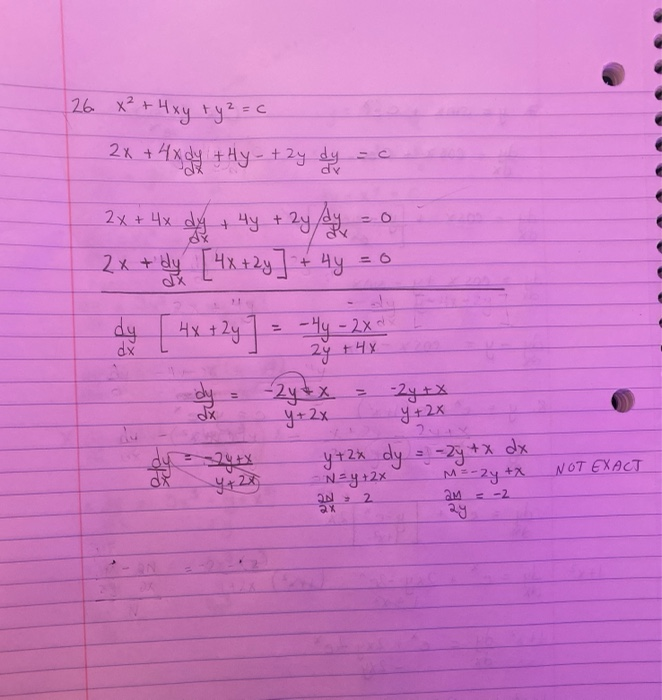 26. x² + 4xy + y² = c
2x + 4x dy/dx + 4y + 2y dy/dx = c
2x + 4x dy/dx + 4y + 2y dy/dx = 0
2x + dy/dx [4x+2y] + 4y = 0
dy/dx [4x+2y] = -4y - 2x / 2y + 4x
dy/dx = -2y+x / y+2x = -2y+x / y+2x
dy/dx = -2y+x / y+2x y+2x dy = -2y+x dx
N=y+2x M=-2y+x NOT EXACT
∂N/∂x = 2 ∂M/∂y = -2